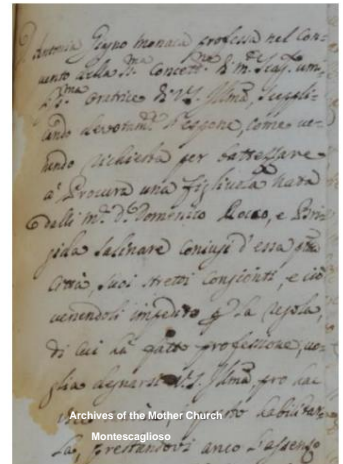 D. Antonia Gegno monaca professa nel Con=
uento della SS.ma Concett.ne di m.e Scag.o um.
S.a Oratrice di V.S. Ill.ma, supplic
ando deuotam.te l'espone, come ue=
nendo richiesta per battezzare
a' Procura una figliuola nata
dalli m.ci D. Domenico Rocco, e Bri=
gida Salinare coniugi d'essa p̃ta
Città, suoi stretti congionti, e ciò
uenendoli impedito p la regola,
di cui hà fatto professione, uo=
glia degnarsi V.S. Ill.ma pro hac
habilitar=
la, prestandovi anco l'assenso
Archives of the Mother Church
Montescaglioso